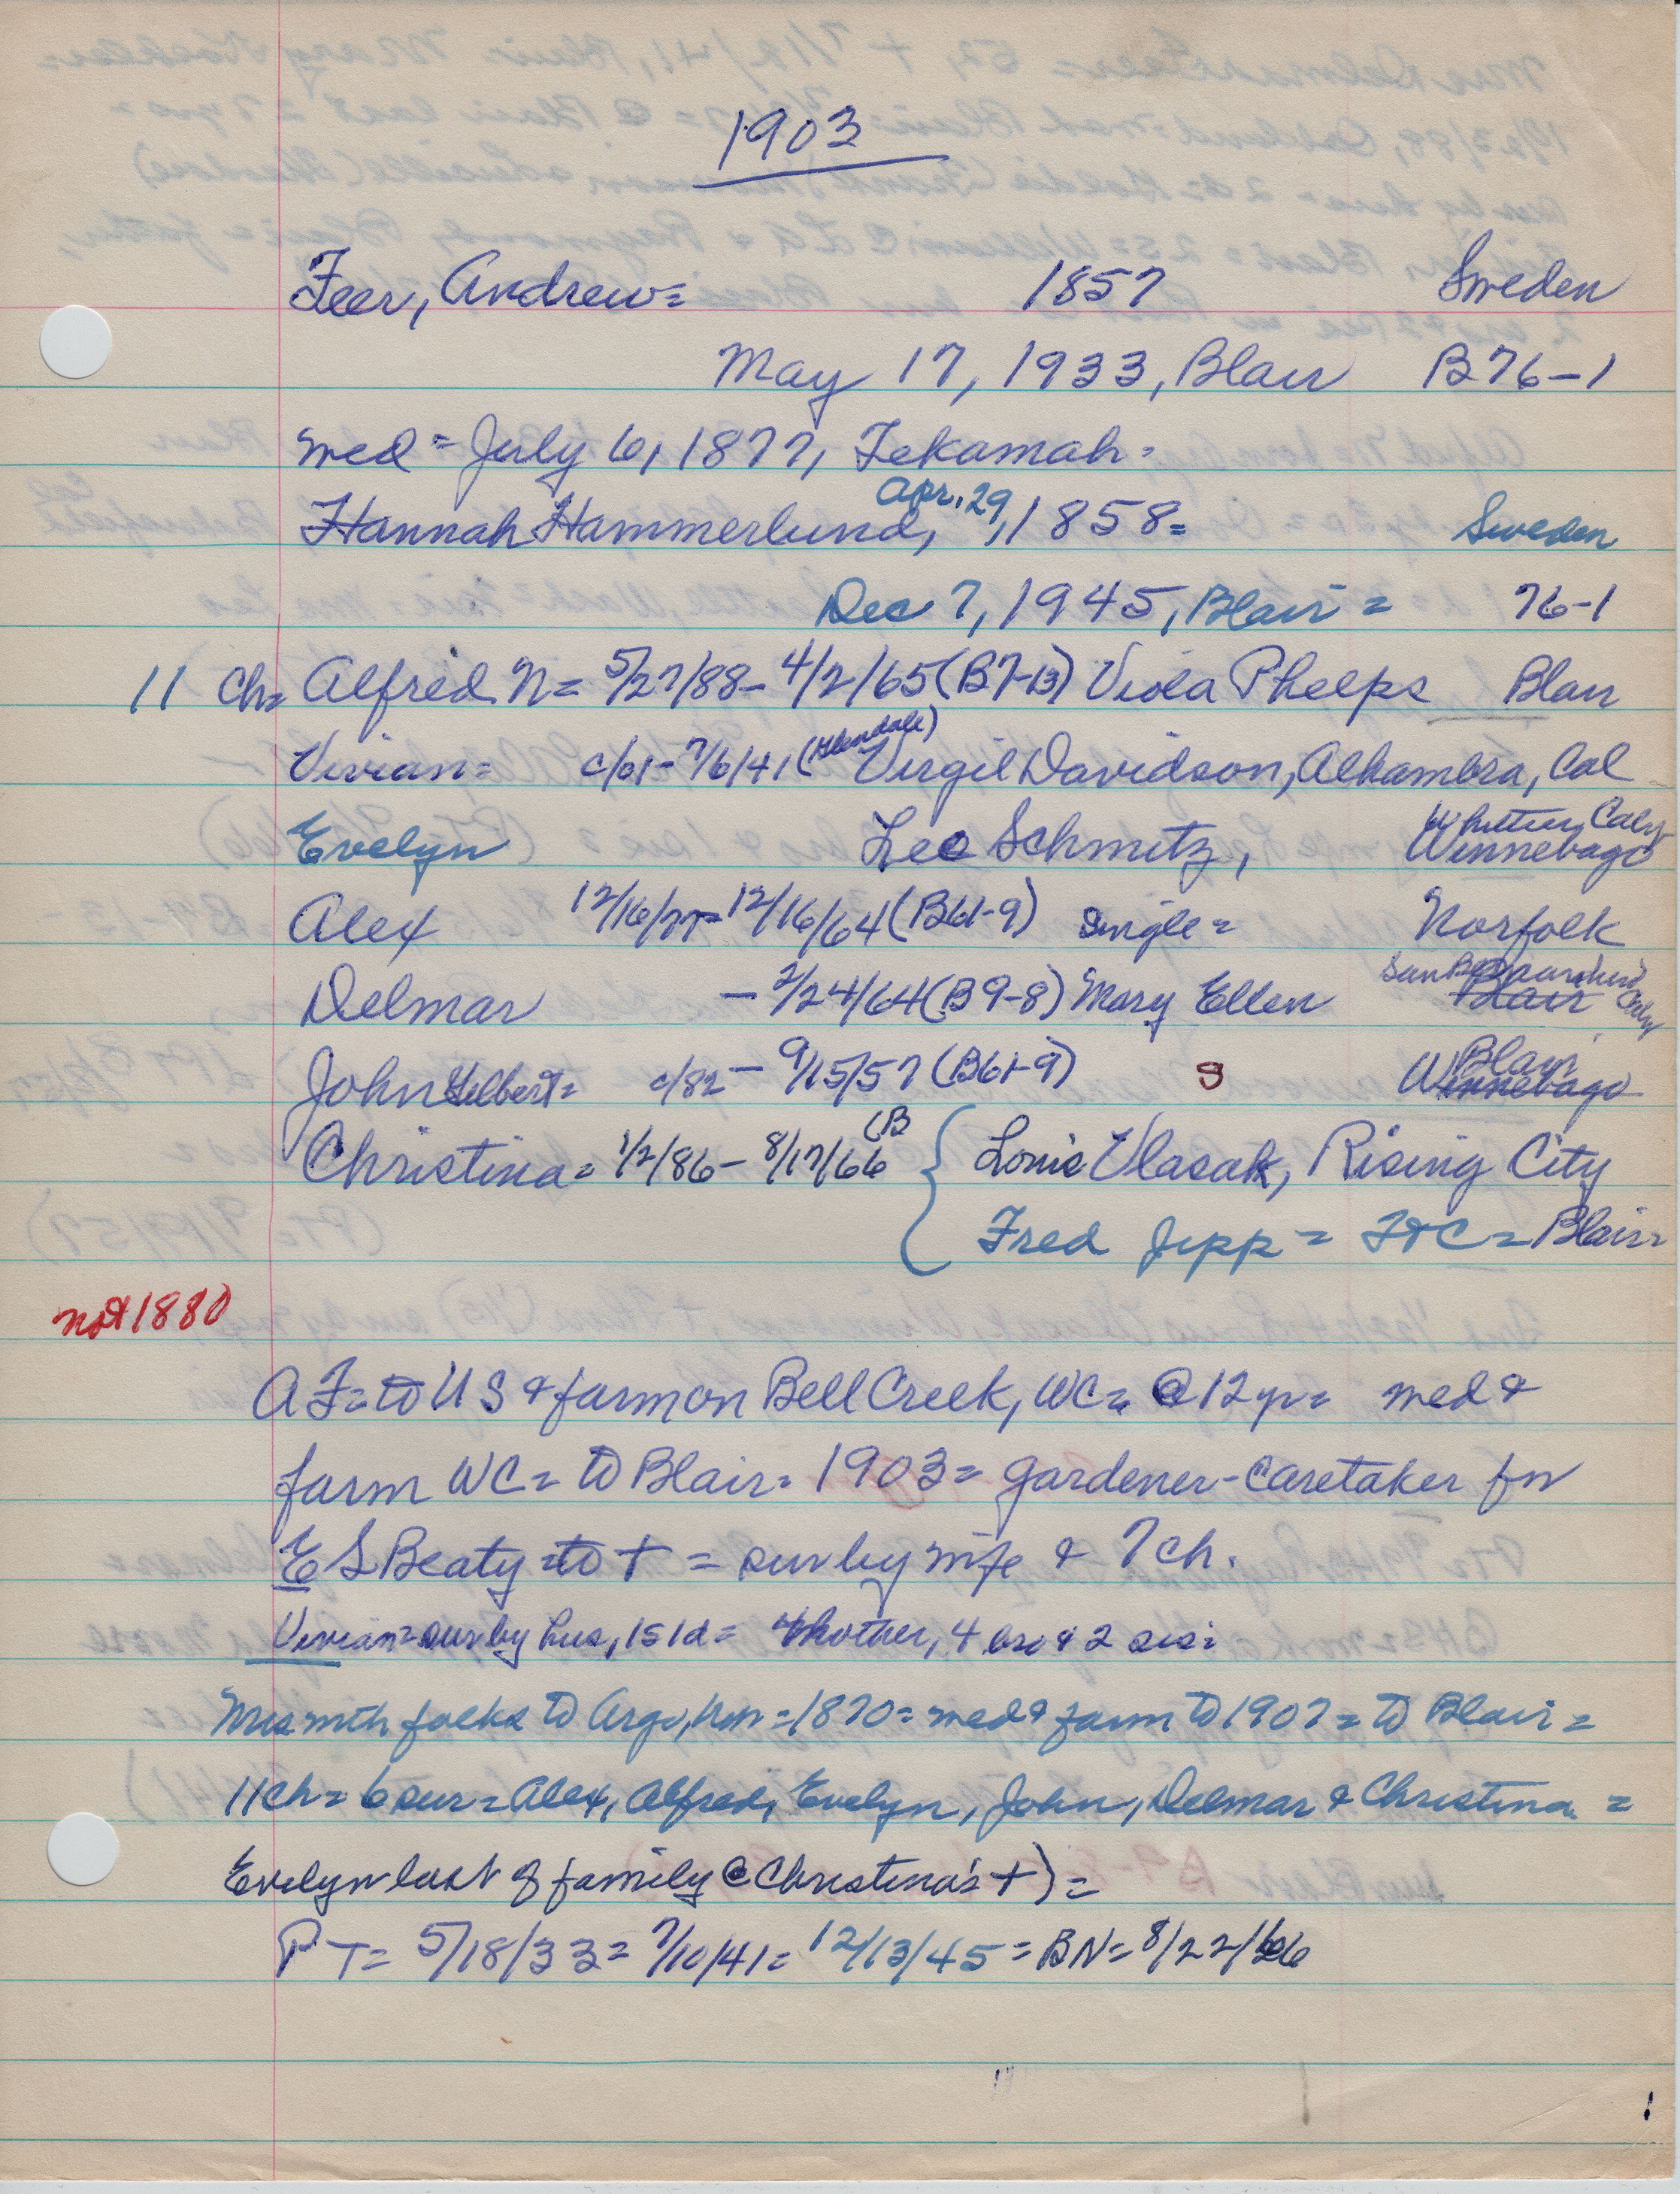 1903
Feer, Andrew = 1857 Sweden
May 17, 1933, Blair B76-1
med = July 6, 1877, Tekamah =
Apr. 29,
Hannah Hammerlund, 1858 = Sweden
Dec 7, 1945, Blair = 76-1
11 Ch = Alfred N = 5/27/88 - 4/2/65 (B7-13) Viola Phelps Blair
Vivian = c/01 - 7/6/41 (Glendale) Virgil Davidson, Alhambra, Cal
Whittier, Calif
Evelyn Leo Schmitz, Winnebago
Alex 12/16/77 - 12/16/64 (B61-9) Single = Norfolk
San Bernardino Calif
Delmar - 2/24/64 (B9-8) Mary Ellen Blair
Blair
John Helbert = c/82 - 9/15/57 (B61-9) S Winnebago
Christina = 1/2/86 - 8/17/66 (B { Louis Vlasak, Rising City
Fred Jipp = F&C = Blair =
not 1880
AF = to US & farm on Bell Creek, WC = @ 12 yr = med &
farm WC = to Blair = 1903 = gardener-caretaker for
E S Beaty = to + = sur by wife & 7 ch.
Vivian = sur by hus, 1s 1d = mother, 4 bro & 2 sis =
Mrs with folks to Argo, = 1870 = med & farm to 1907 = to Blair =
11 ch = 6 sur = Alex, Alfred, Evelyn, John, Delmar & Christina =
Evelyn last of family @ Christina's +) =
PT = 5/18/33 = 7/10/41 = 12/13/45 = BN = 8/22/66